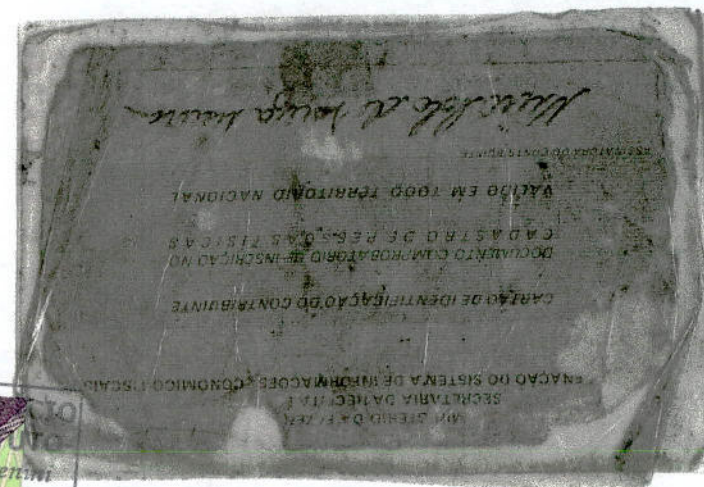 MINISTÉRIO DA FAZENDA
SECRETARIA DA RECEITA F
ENAÇÃO DO SISTEMA DE INFORMAÇÕES ECONÔMICO FISCAIS
CARTÃO DE IDENTIFICAÇÃO DO CONTRIBUINTE
DOCUMENTO COMPROBATÓRIO DE INSCRIÇÃO NO
CADASTRO DE PESSOAS FÍSICAS
VÁLIDO EM TODO TERRITÓRIO NACIONAL
ASSINATURA DO CONTRIBUINTE
UTO